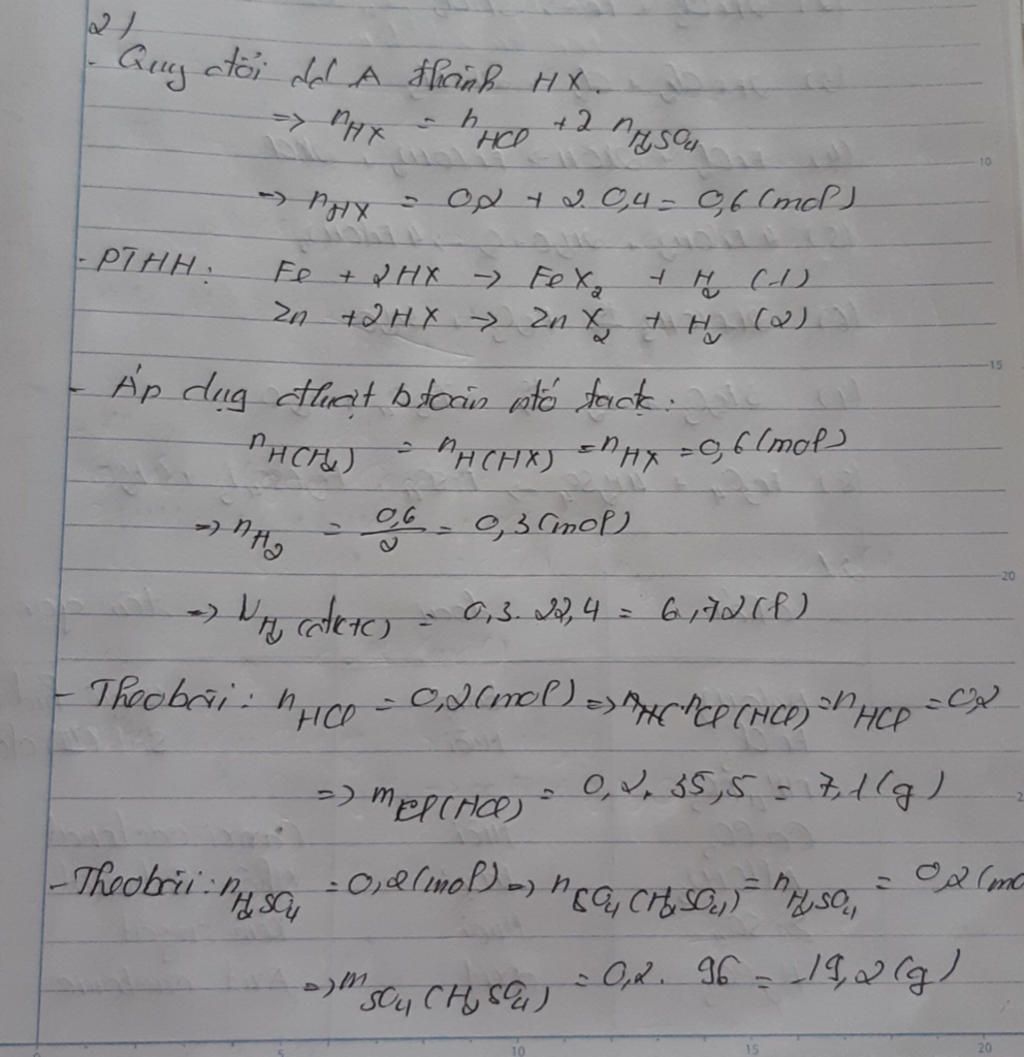 2/
- Quy đổi dd A thành HX.
=> nHX = nHCl + 2 nH2SO4
-> nHX = 0,2 + 2. 0,4 = 0,6 (mol)
- PTHH: Fe + 2HX -> FeX2 + H2 (1)
Zn + 2HX -> ZnX2 + H2 (2)
- Áp dụg thuật b toàn ntố
nH(H2) = nH(HX) = nHX = 0,6 (mol)
=> nH2 = 0,6/2 = 0,3 (mol)
=> VH2 (đktc) = 0,3. 22,4 = 6,72 (l)
- Theo bài: nHCl = 0,2 (mol) => nCl (HCl) = nHCl = 0,2
=> mCl (HCl) = 0,2. 35,5 = 7,1 (g)
- Theo bài: nH2SO4 = 0,2 (mol) => nSO4 (H2SO4) = nH2SO4 = 0,2 (mo
=> mSO4 (H2SO4) = 0,2. 96 = 19,2 (g)